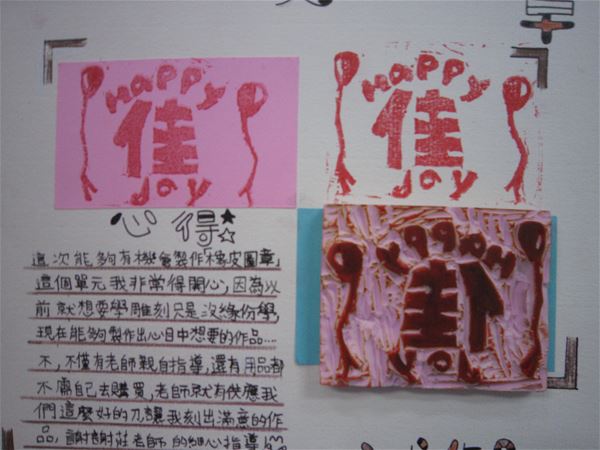 Happy
佳
Joy
Happy
佳
Joy
Happy
佳
Joy
心得
這次能夠有機會製作橡皮圖章,
這個單元我非常得開心,因為以
前就想要學雕刻只是沒緣份學,
現在能夠製作出心目中想要的作品...
不,不僅有老師親自指導,還有用品都
不需自己去購買,老師就有供應我
們這麼好的刀讓我刻出滿意的作
品,謝謝莊老師的細心指導